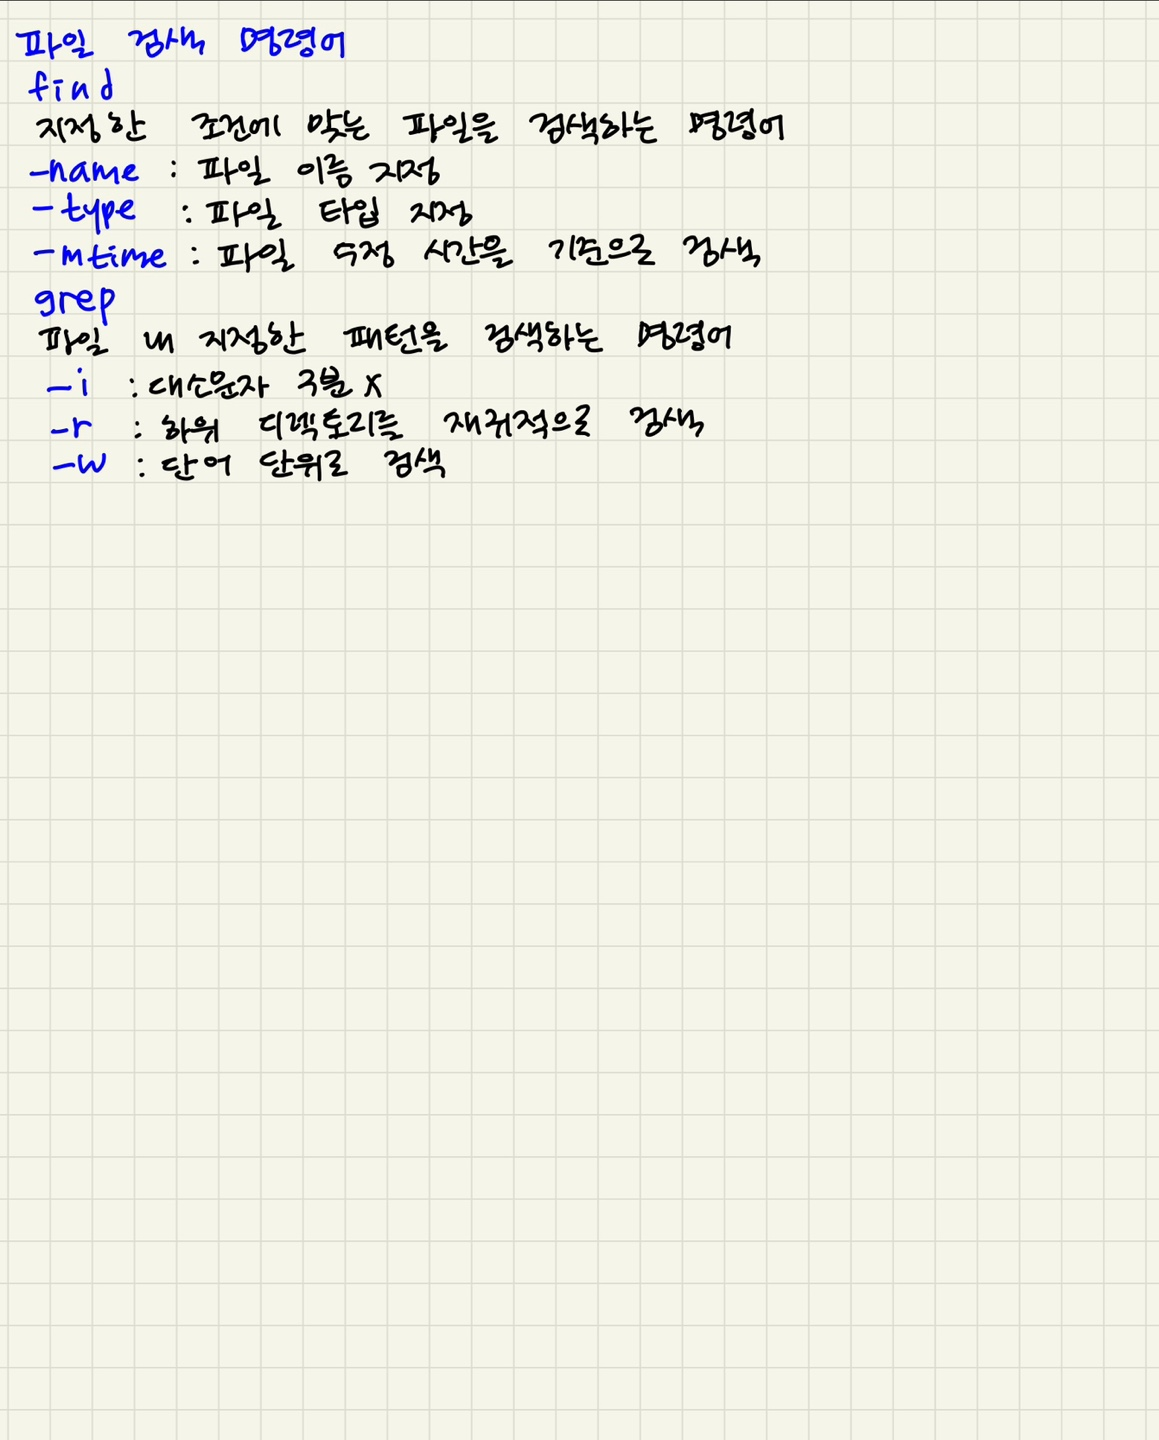 파일 검색 명령어
find
지정한 조건에 맞는 파일을 검색하는 명령어
-name : 파일 이름 지정
-type : 파일 타입 지정
-mtime : 파일 수정 시간을 기준으로 검색
grep
파일 내 지정한 패턴을 검색하는 명령어
-i : 대소문자 구분 X
-r : 하위 디렉토리를 재귀적으로 검색
-w : 단어 단위로 검색